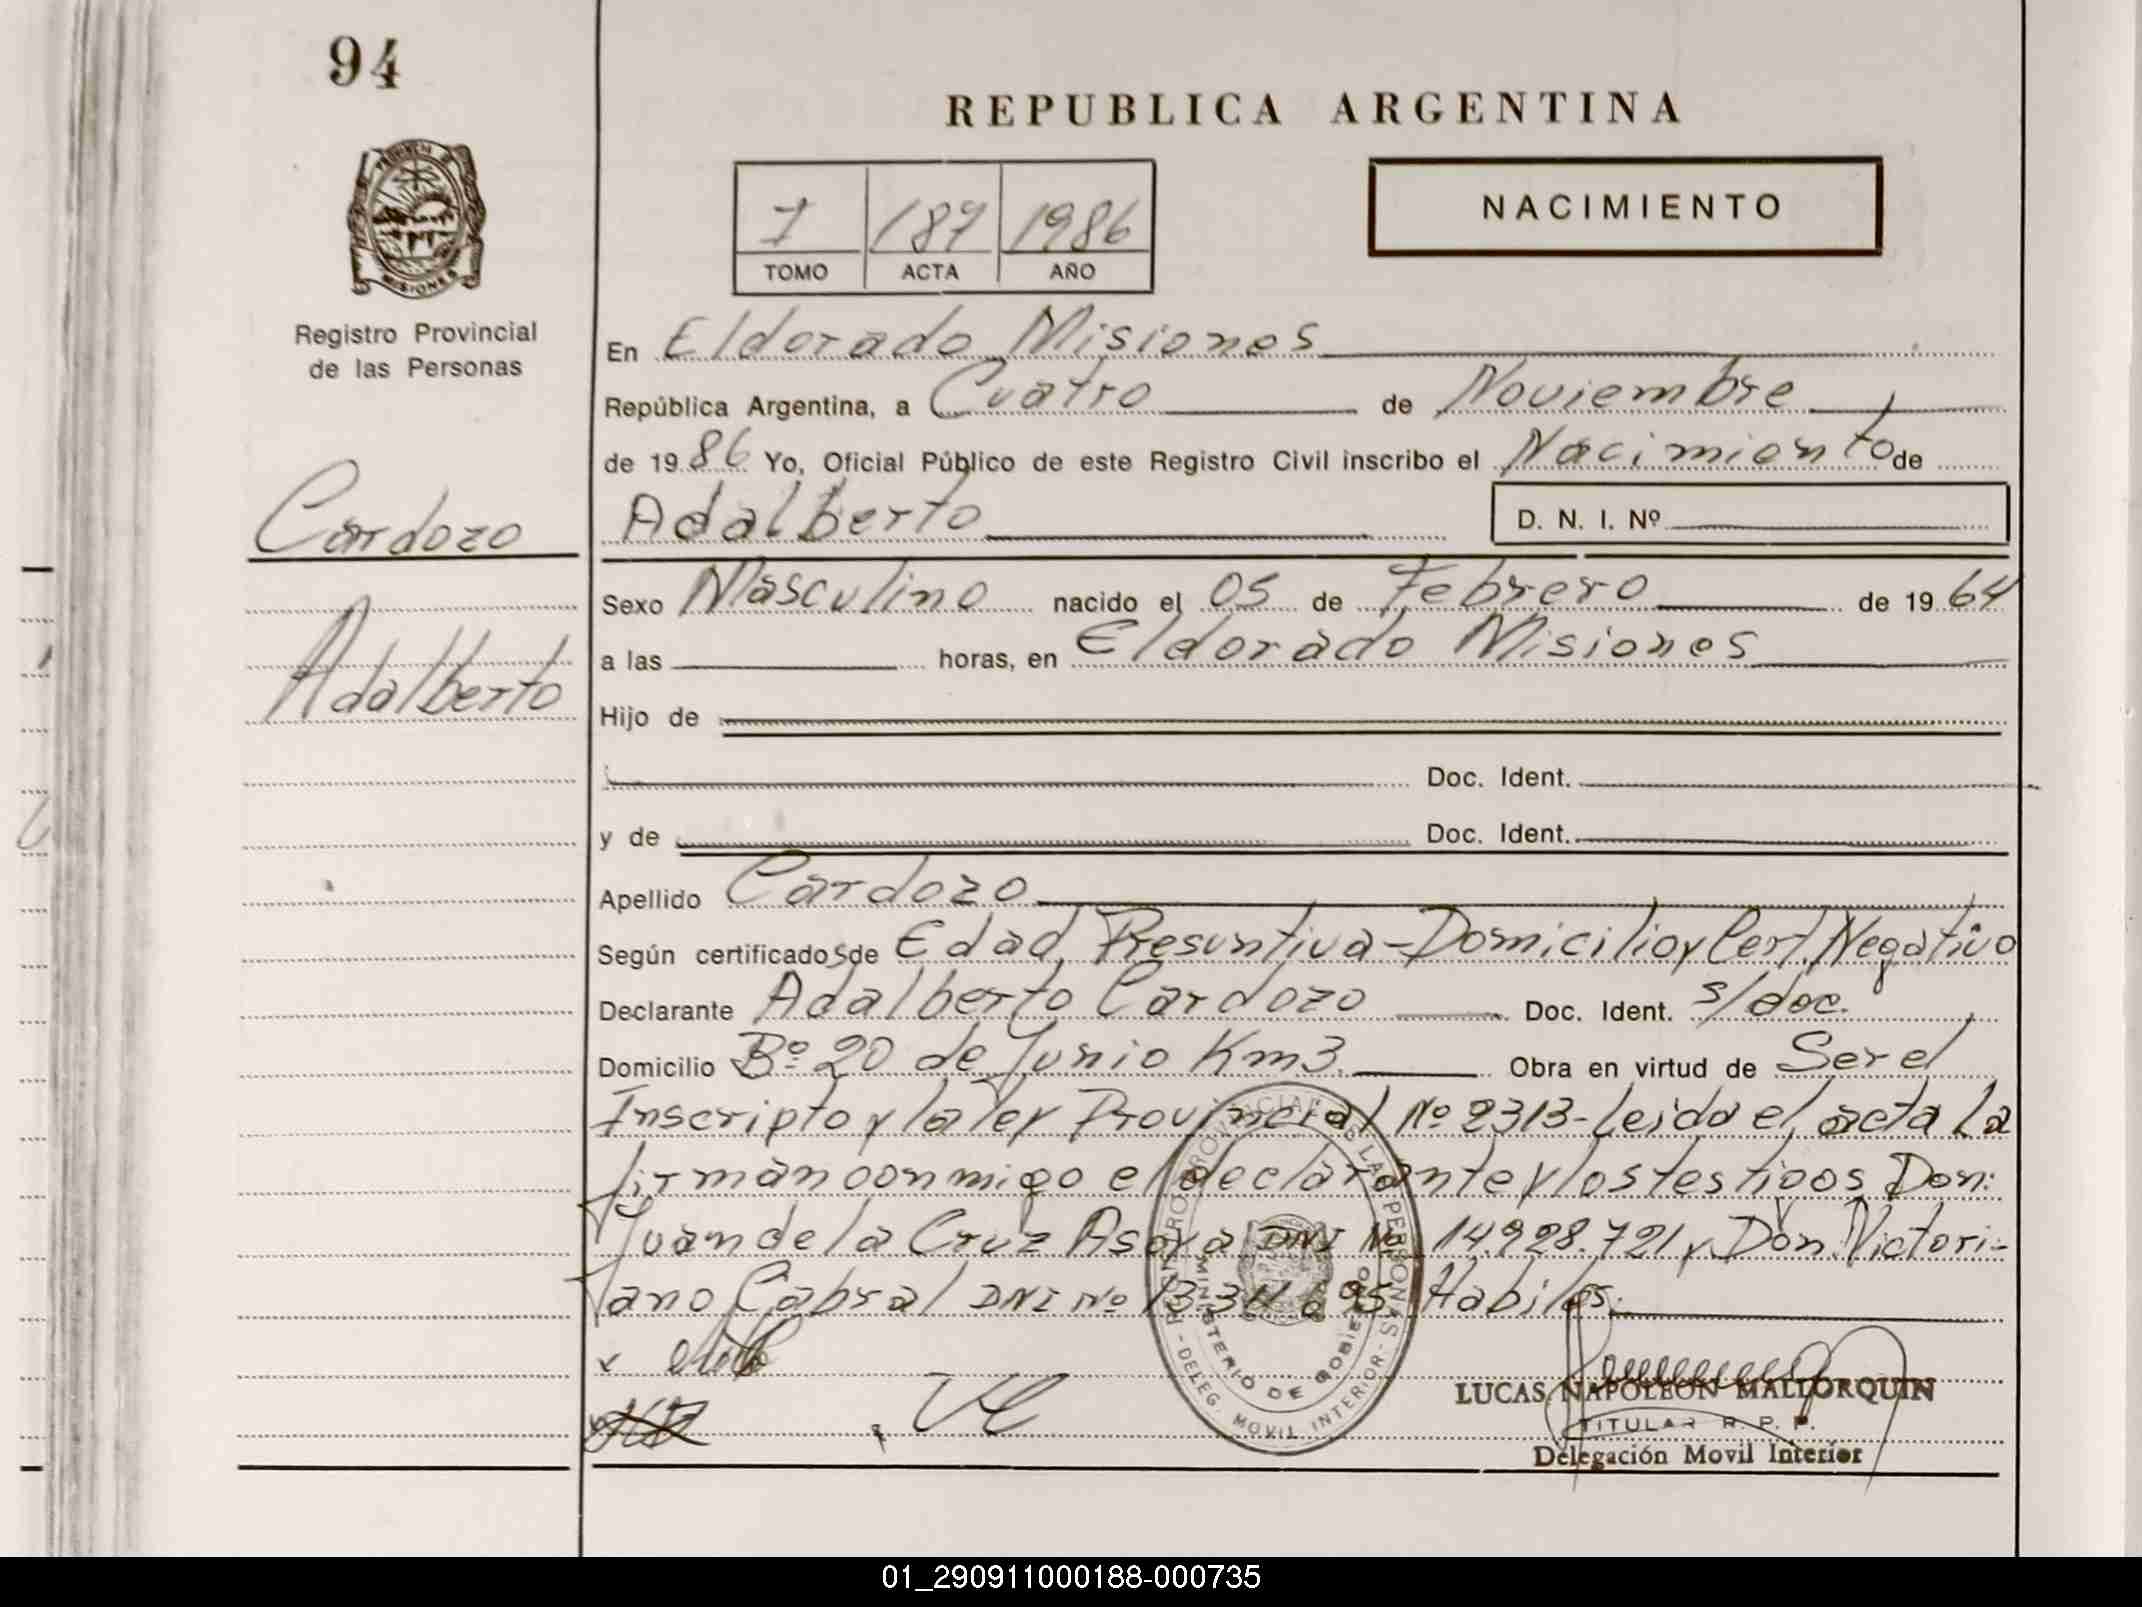 94
REPUBLICA ARGENTINA
PROVINCIA DE
MISIONES
Registro Provincial
de las Personas
I 187 1986
TOMO ACTA AÑO
NACIMIENTO
En Eldorado Misiones
República Argentina, a Cuatro de Noviembre
de 1986 Yo, Oficial Público de este Registro Civil inscribo el Nacimiento de
Cardozo
Adalberto D. N. I. Nº
Sexo Masculino nacido el 05 de Febrero de 1964
Adalberto
a las horas, en Eldorado Misiones
Hijo de
Doc. Ident.
y de Doc. Ident.
Apellido Cardozo
Según certificados de Edad Presuntiva - Domicilio y Cert. Negativo
Declarante Adalberto Cardozo Doc. Ident. s/doc.
Domicilio Bº 20 de Junio Km 3. Obra en virtud de Ser el
Inscripto y la Ley Provincial Nº 2313 - Leida el acta la
firman conmigo el declarante y los testigos Don:
Juan de la Cruz Asoya DNI Nº 14.928.721 y Don Victori-
ano Cabral DNI Nº Habiles.
REGISTRO PROVINCIAL DE LAS PERSONAS
MINISTERIO DE GOBIERNO
- DELEG. MOVIL INTERIOR -
LUCAS NAPOLEON MALLORQUIN
TITULAR R. P. P.
Delegación Movil Interior
01_290911000188-000735